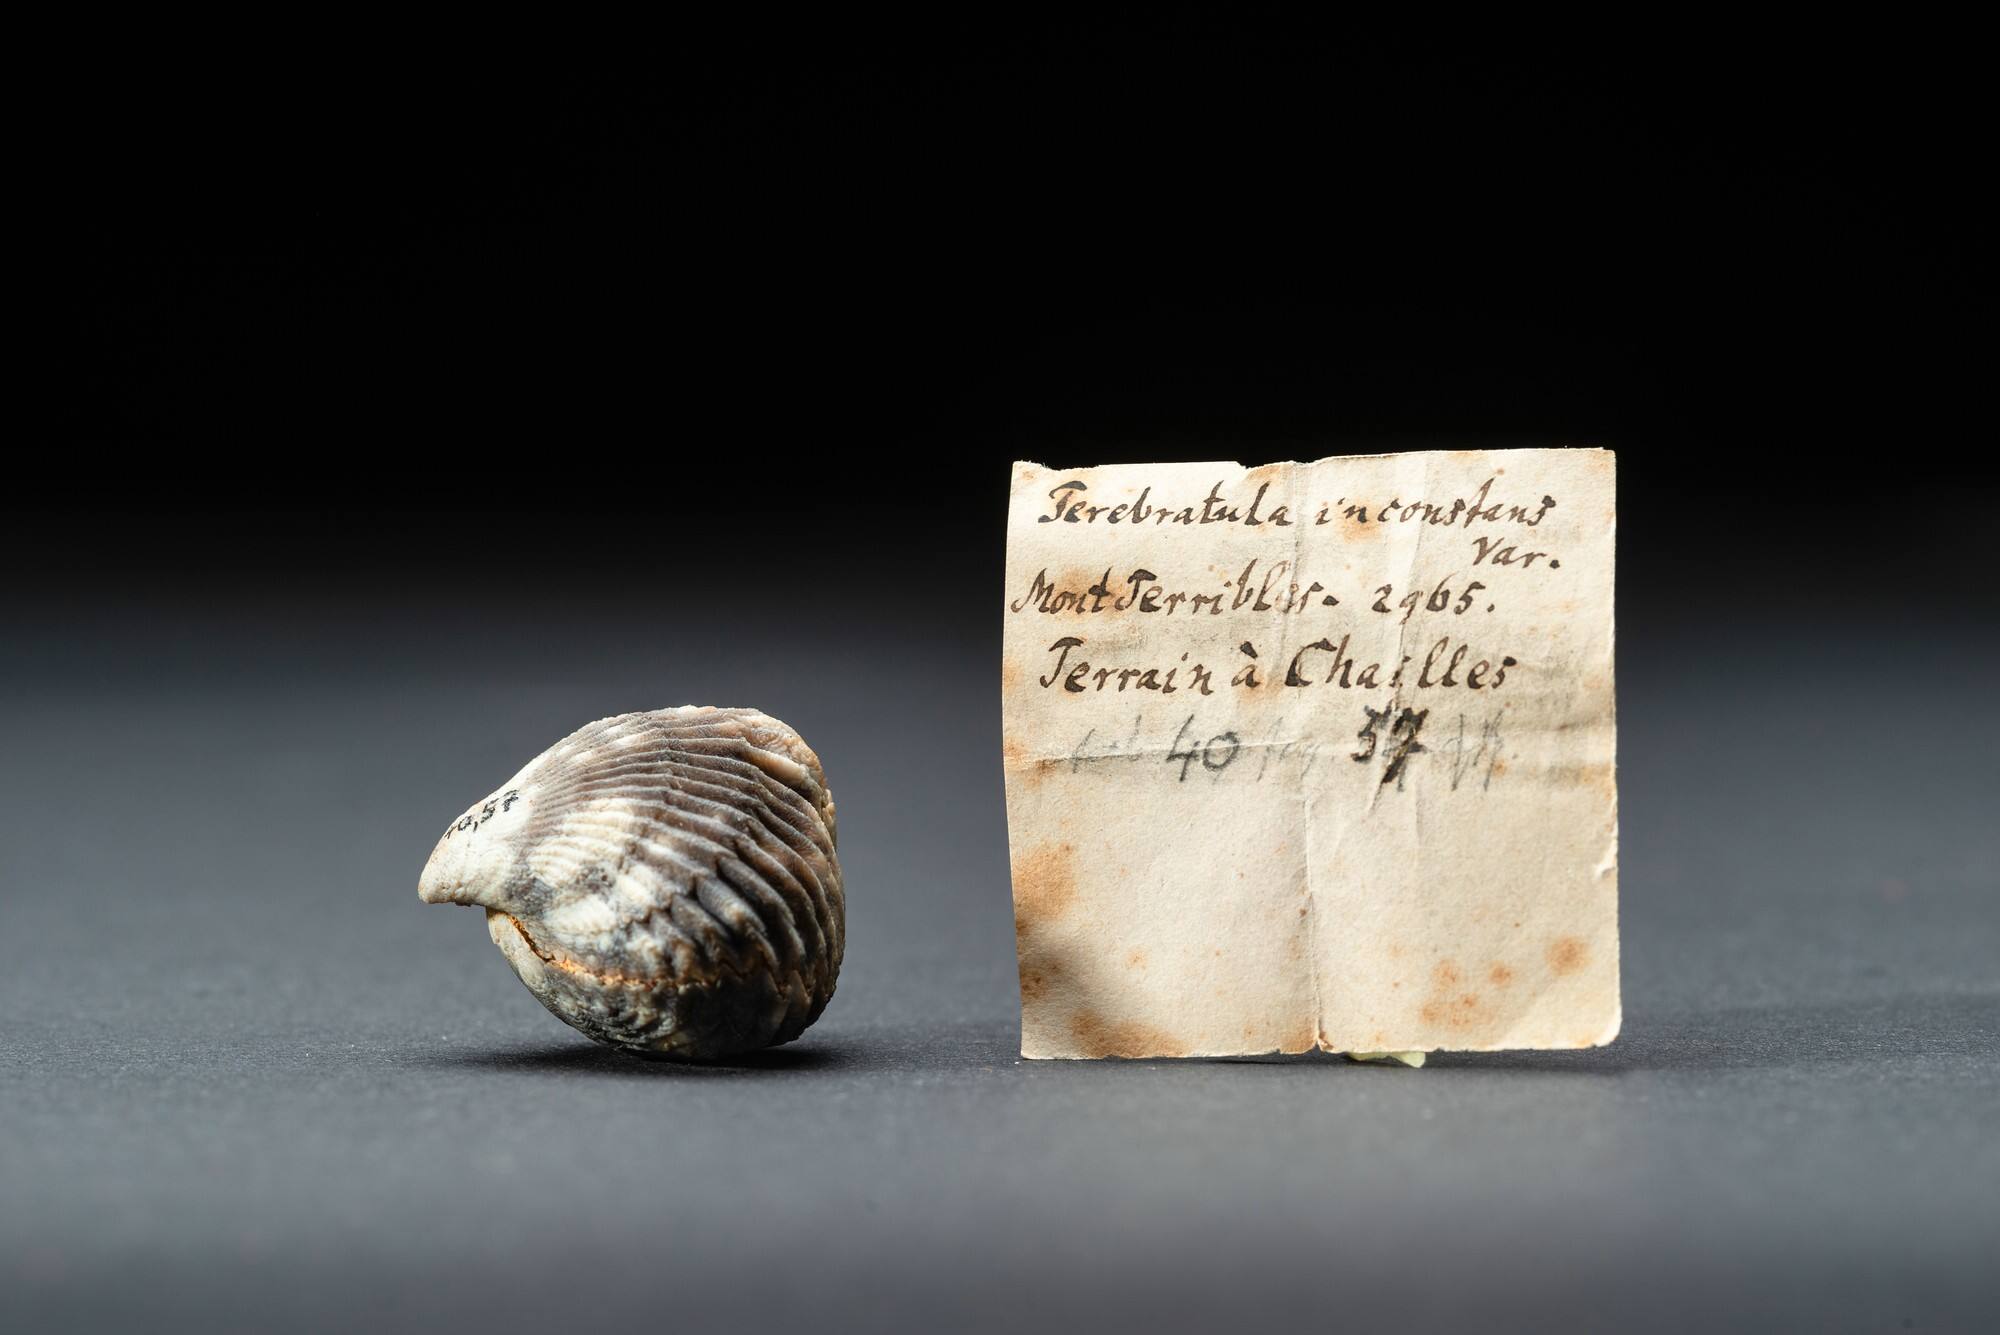 40,57
Terebratula inconstans
Var.
Mont Terribles. 2965.
Terrain à Chailles
40 57